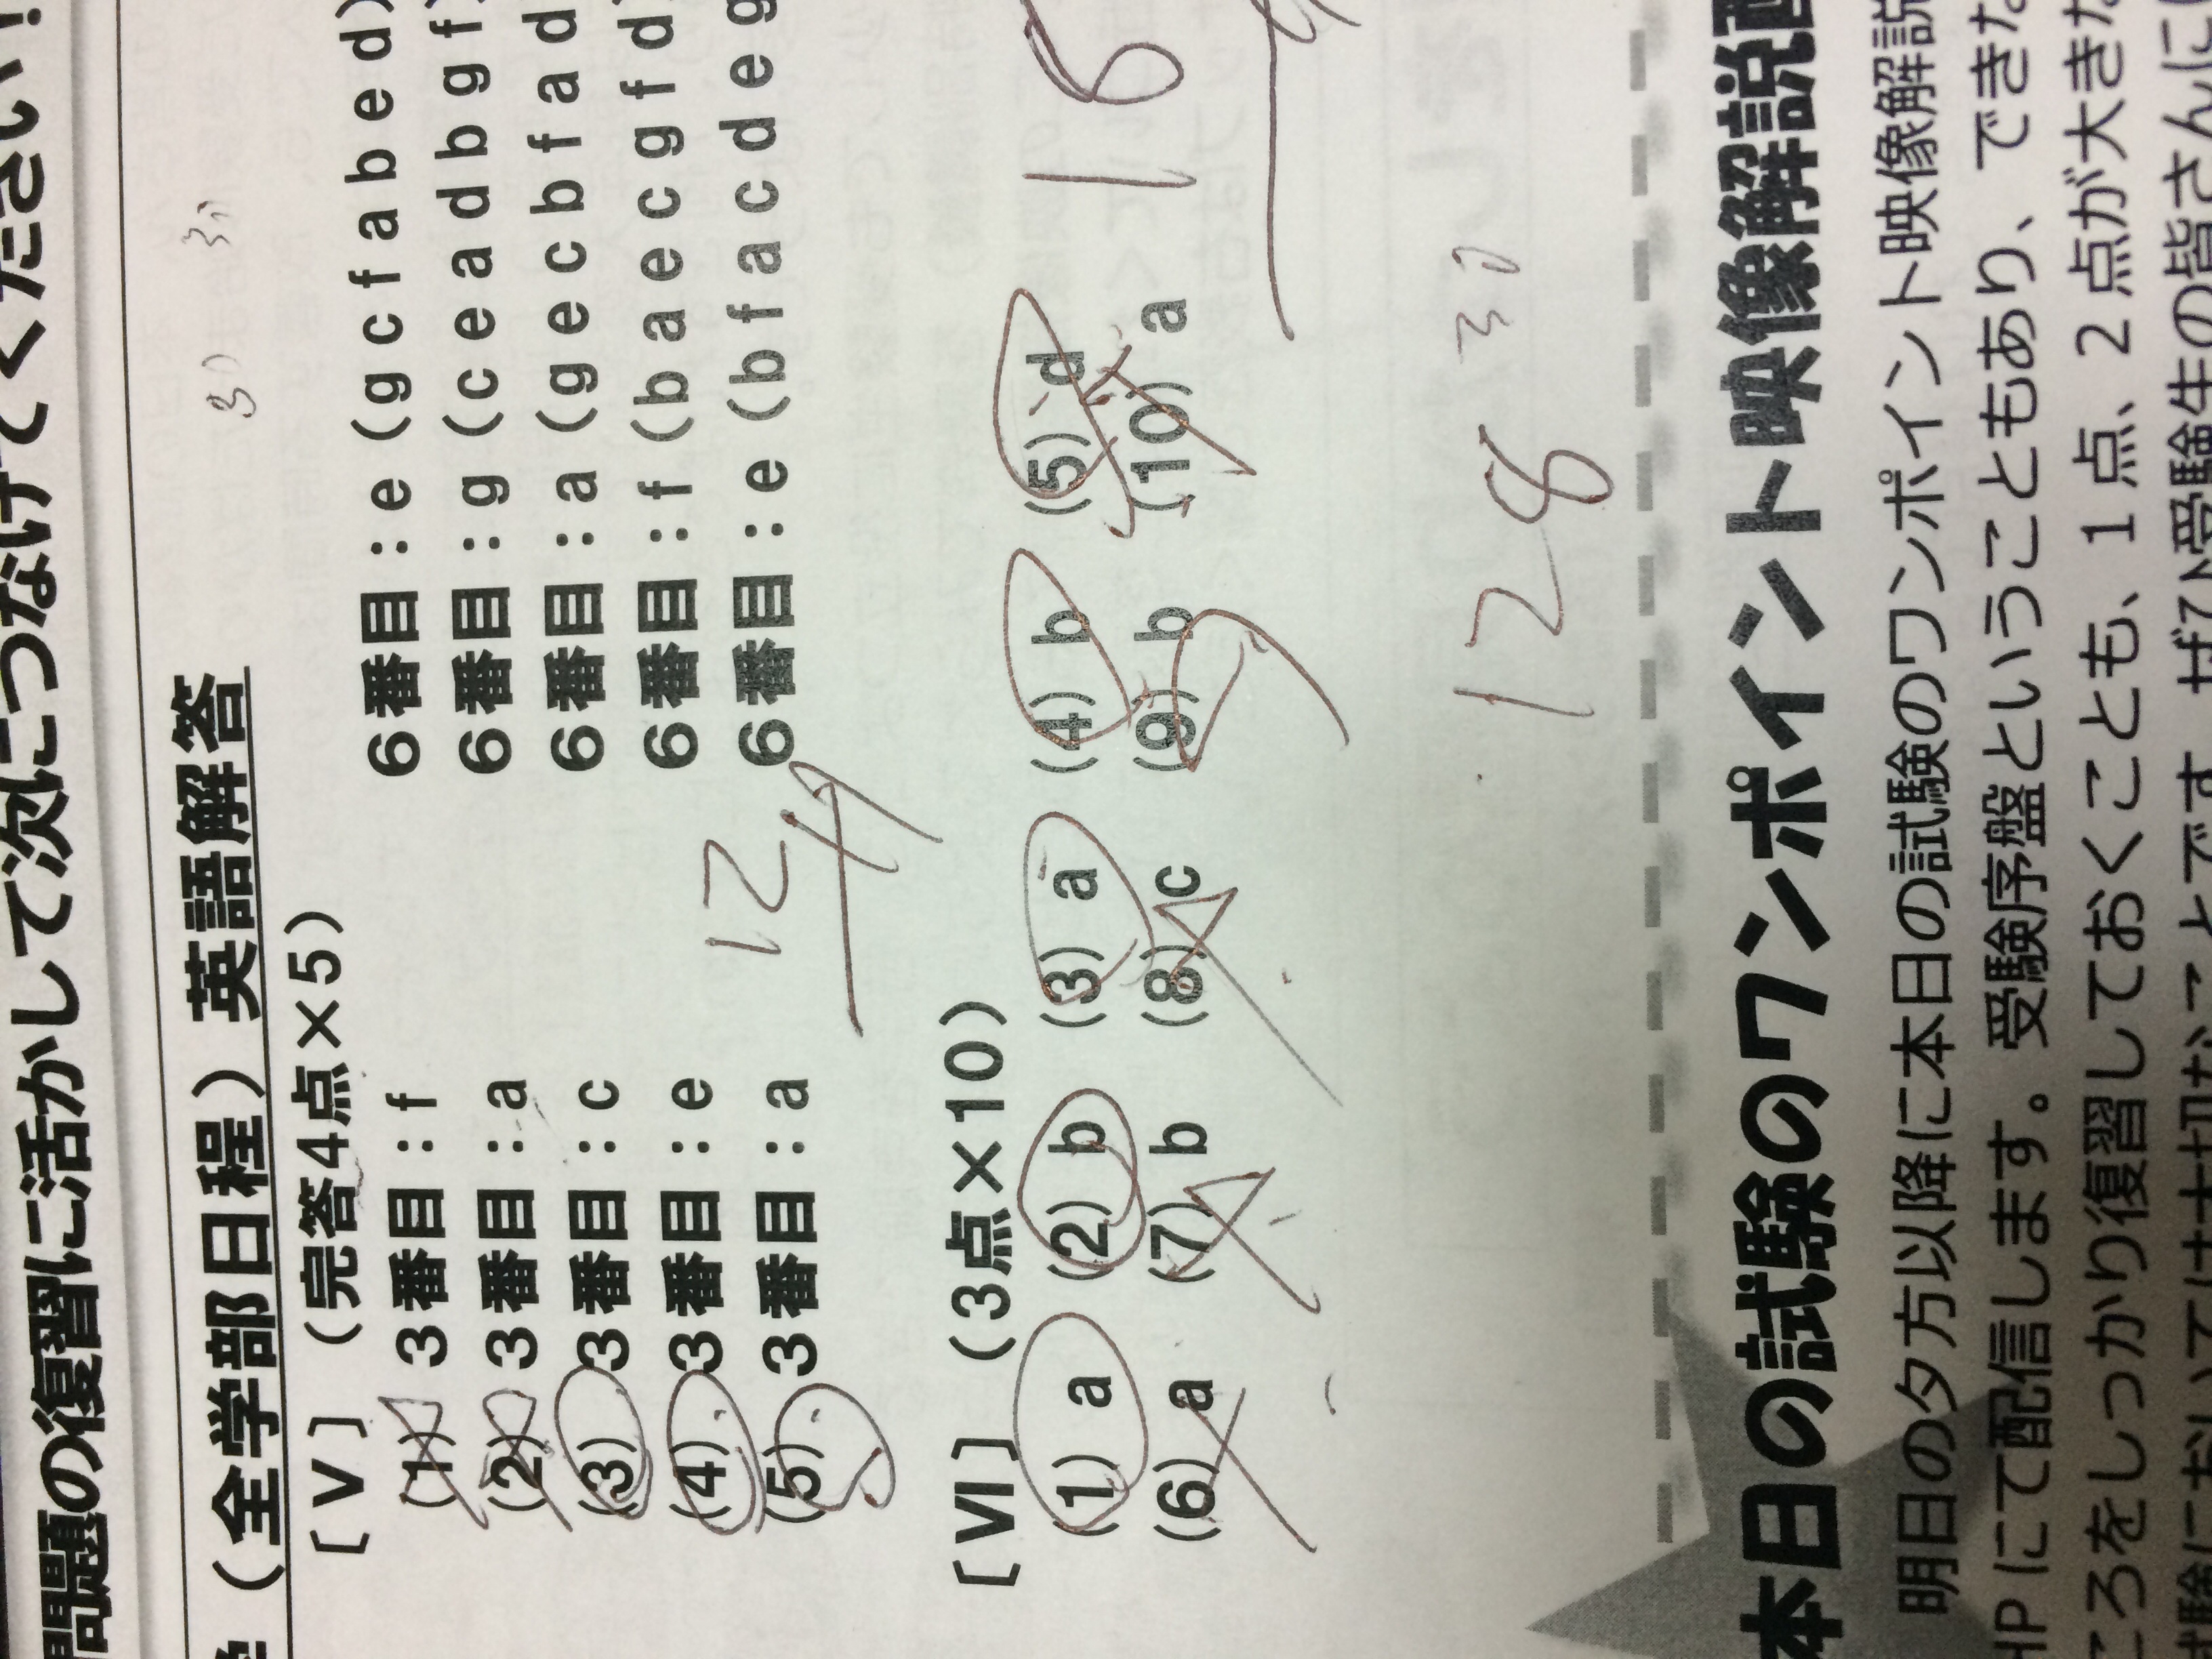 問題の復習に活かして次につなげてください!
(全学部日程)英語解答
[Ⅴ] (完答4点×5)
(1) 3番目:f 6番目:e (g c f a b e d)
(2) 3番目:a 6番目:g (c e a d b g f)
(3) 3番目:c 6番目:a (g e c b f a d
(4) 3番目:e 6番目:f (b a e c g f d)
(5) 3番目:a 6番目:e (b f a c d e g
12
[Ⅵ] (3点×10)
(1) a (2) b (3) a (4) b (5) d
(6) a (7) b (8) c (9) b (10) a
128
本日の試験のワンポイント映像解説配
明日の夕方以降に本日の試験のワンポイント映像解説
HPにて配信します。受験序盤ということもあり、できな
ころをしっかり復習しておくことも、1点、2点が大きな
試験においては大切なことです。ぜひ受験生の皆さんに